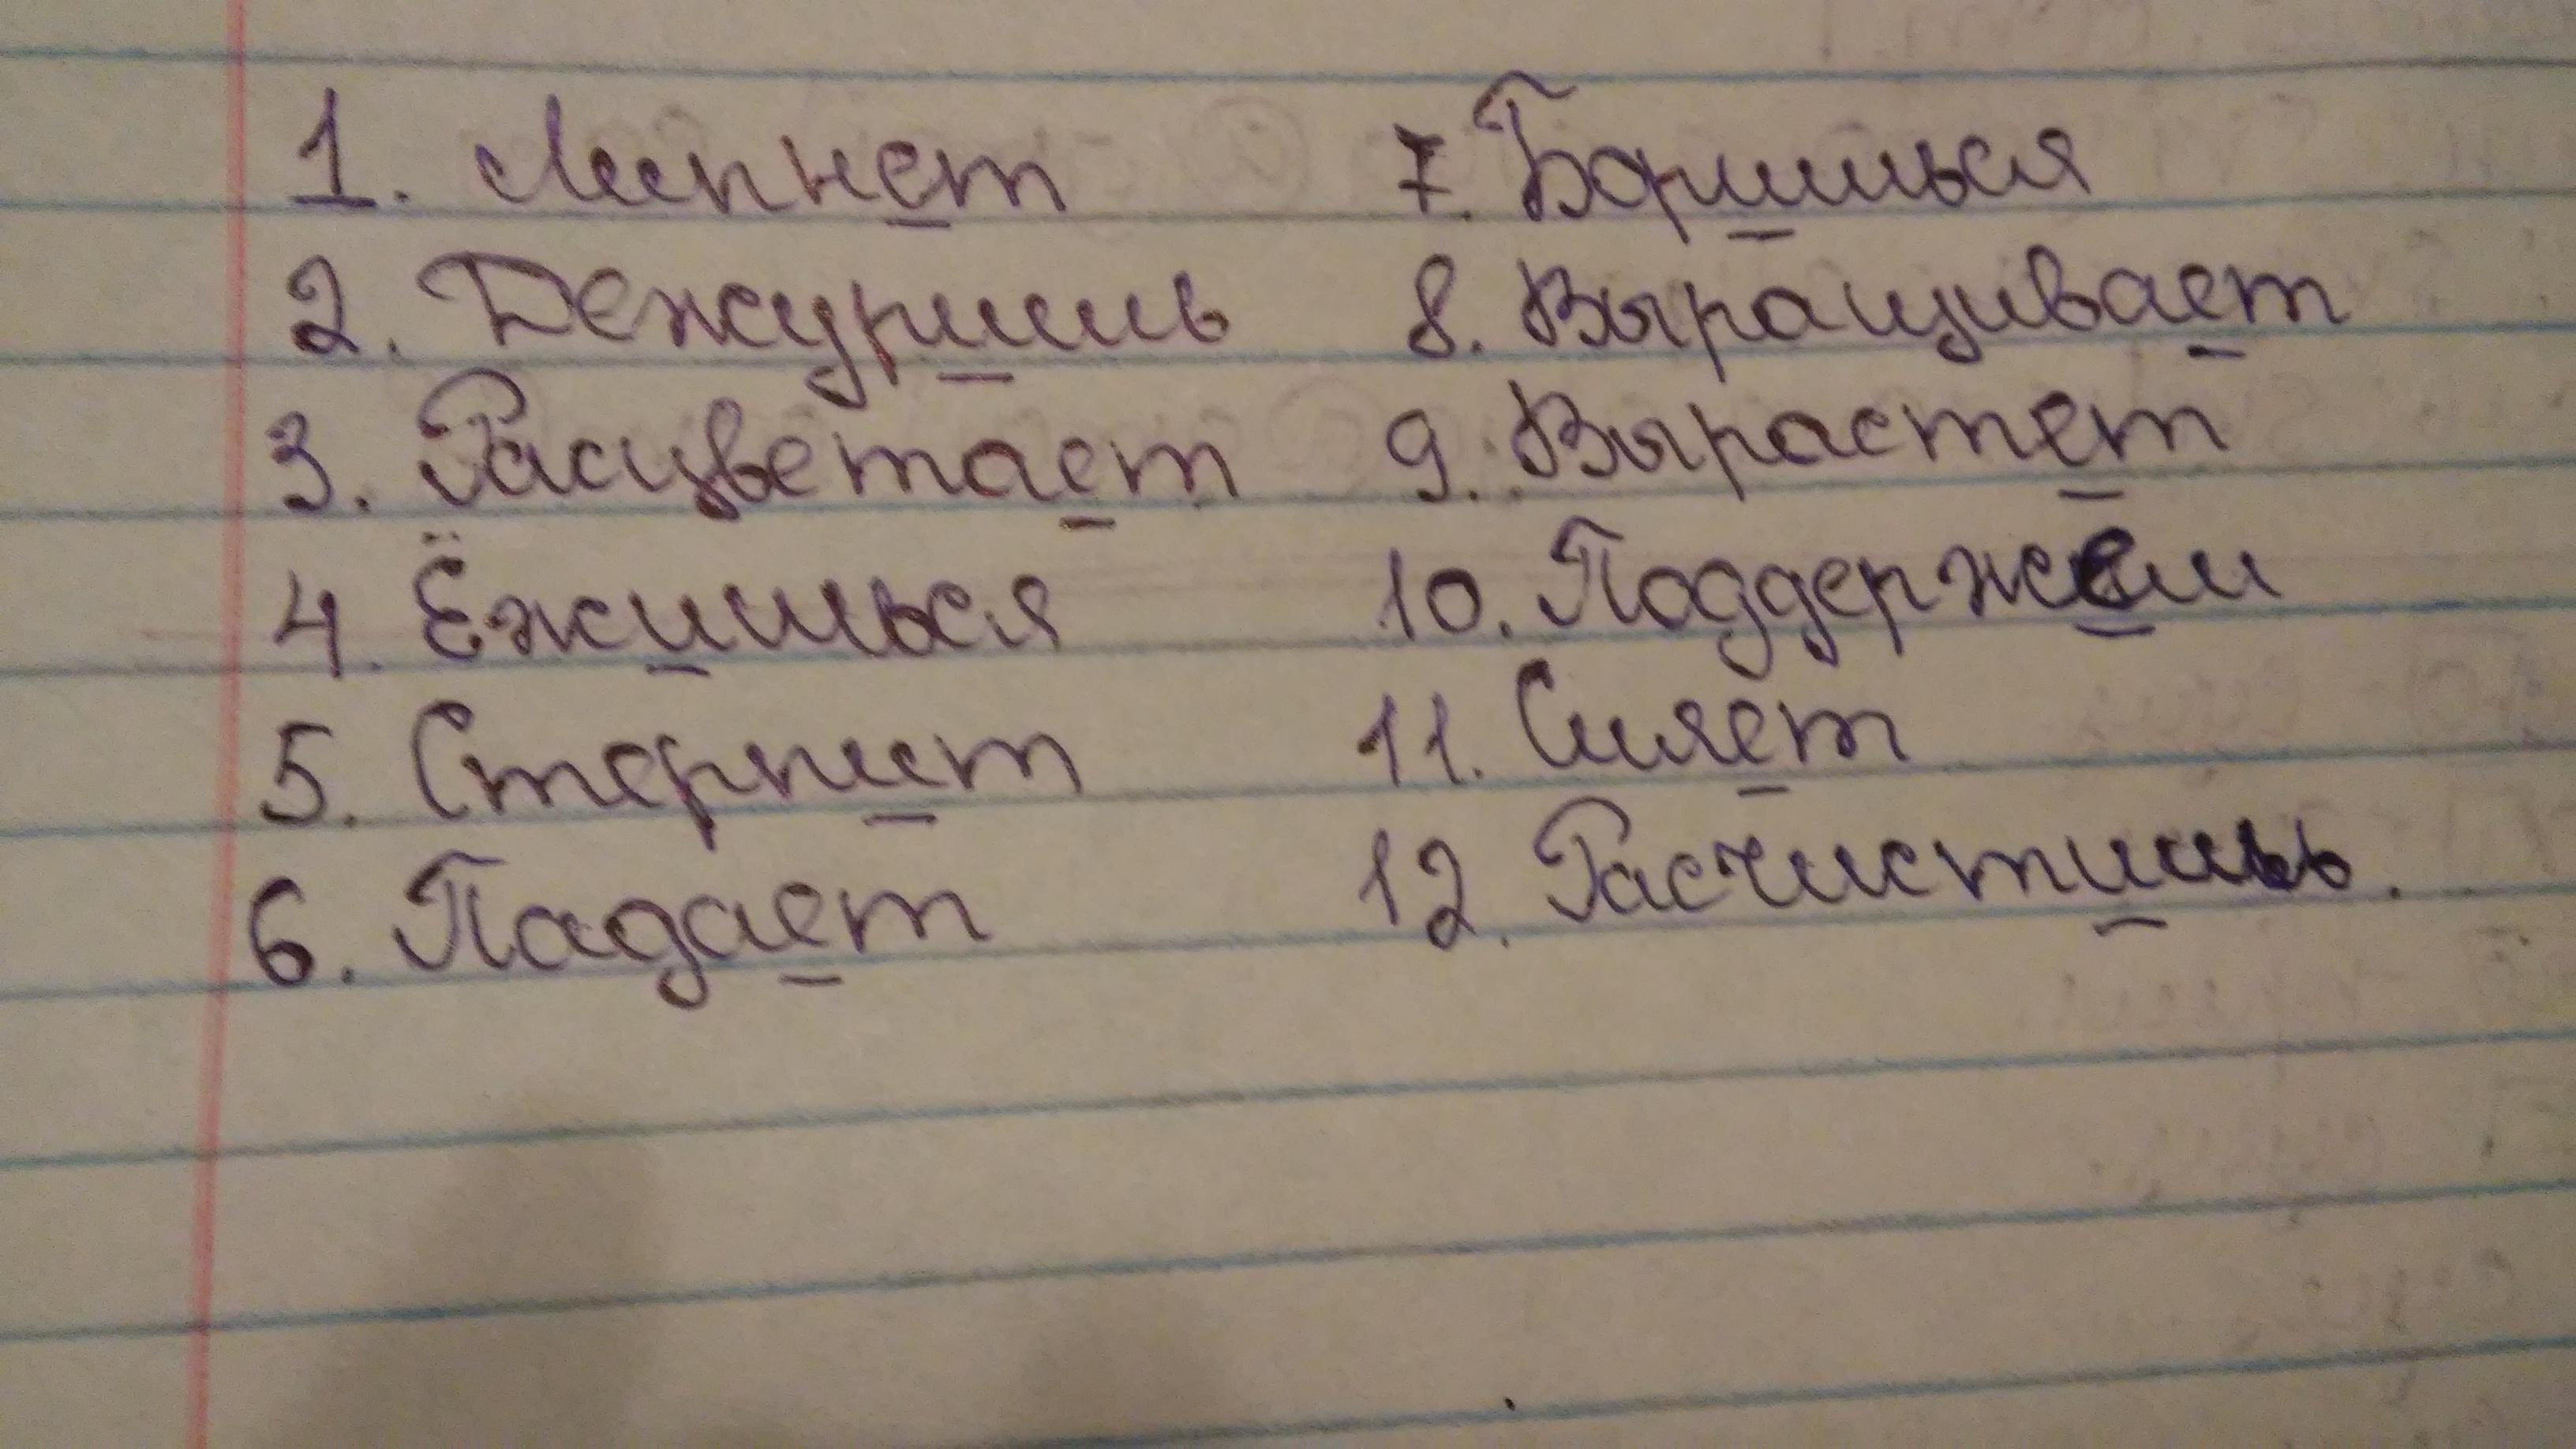 1. Липнет
2. Дежуришь
3. Расцветает
4. Ёжишься
5. Стерпит
6. Падает
7. Боришься
8. Выращивает
9. Вырастет
10. Поддержем
11. Сияет
12. Расчистишь.